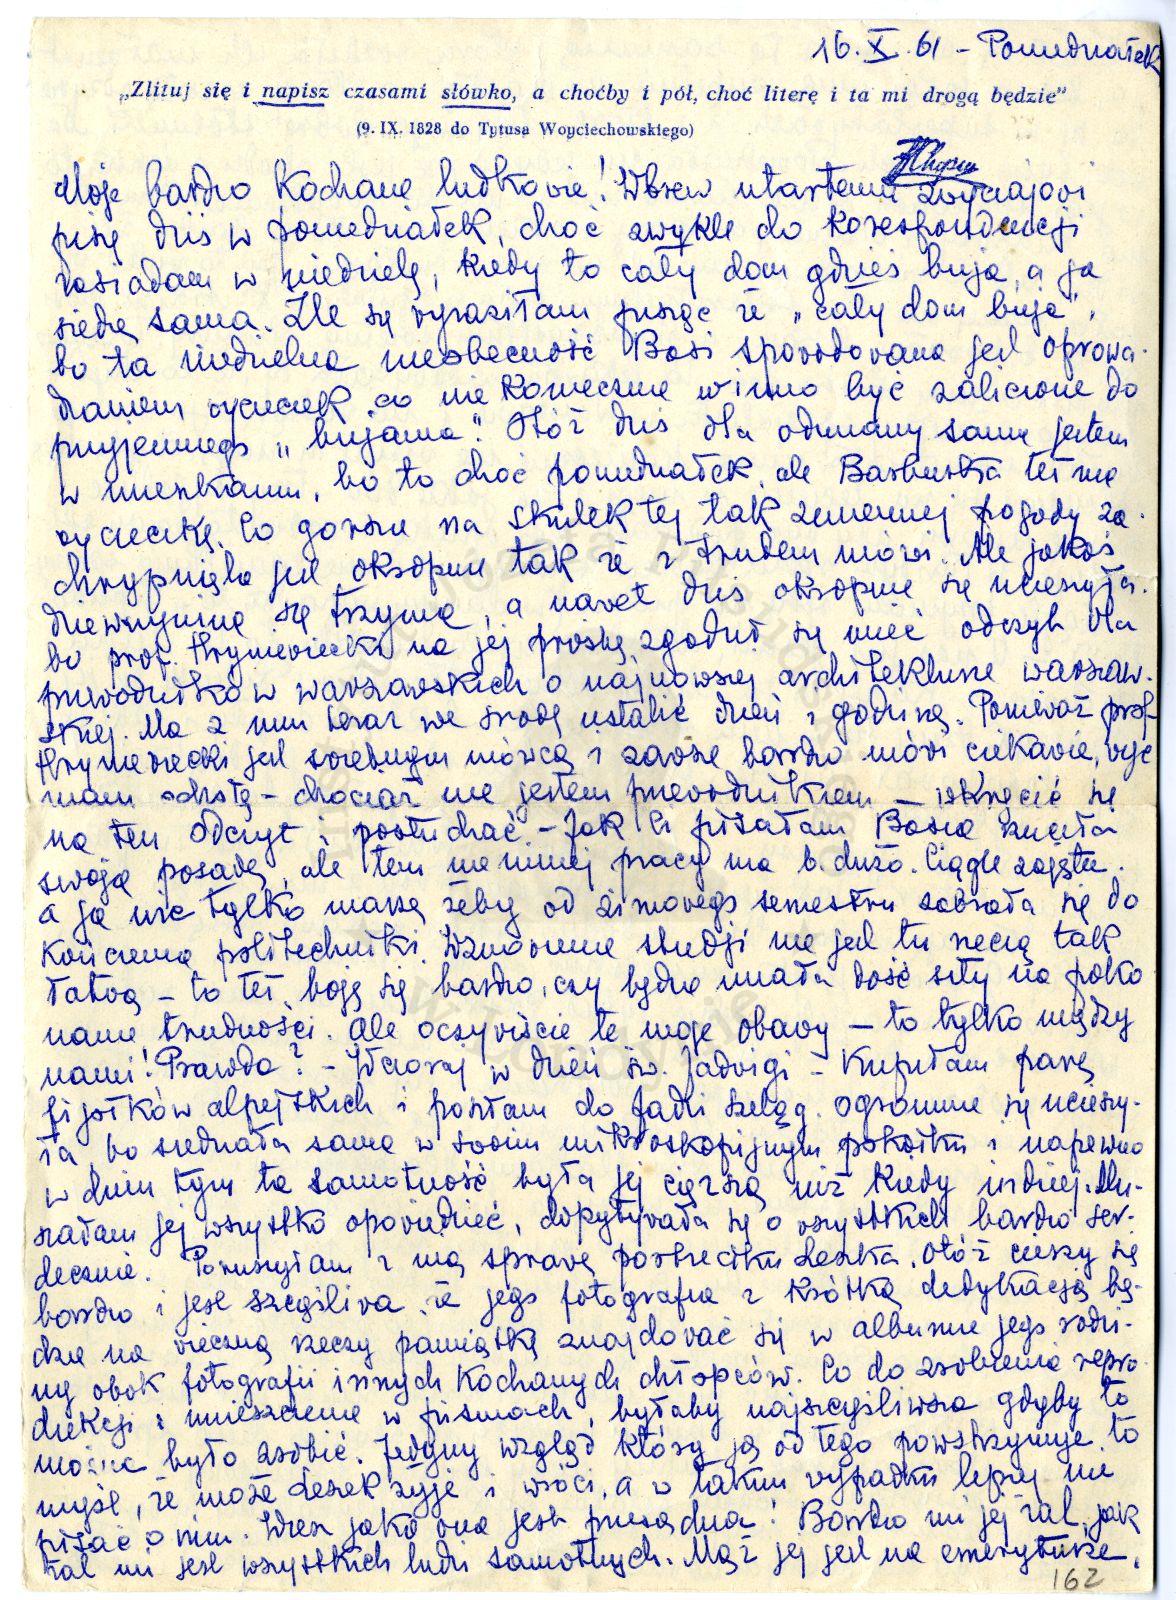 16.X.61 - Poniedziałek
„Zlituj się i napisz czasami słówko, a choćby i pół, choć literę i ta mi drogą będzie”
(9. IX. 1828 do Tytusa Woyciechowskiego)
FChopin
Moje bardzo Kochane ludkowie! Wbrew utartemu zwyczajowi
piszę dziś w poniedziałek, choć zwykle do korespondencji
zasiadam w niedzielę, kiedy to cały dom gdzieś buja, a ja
siedzę sama. Źle się wyraziłam pisząc że „cały dom buja”,
bo ta niedzielna nieobecność Basi spowodowana jest oprowa-
dzaniem wycieczek, co nie koniecznie winno być zaliczone do
przyjemnego „bujania”. Otóż dziś dla odmiany sama jestem
w mieszkaniu, bo to choć poniedziałek, ale Barburka też ma
wycieczkę. Co gorsze na skutek tej tak zmiennej pogody za-
chrypnięta jest okropnie tak że z trudem mówi. Ale jakoś
dziewczynina się trzyma, a nawet dziś okropnie się ucieszyła
bo prof. Hryniewiecki na jej prośbę zgodził się mieć odczyt dla
przewodników warszawskich o najnowszej architekturze warszaw-
skiej. Ma z nim teraz we środę ustalić dzień i godzinę. Ponieważ prof.
Hryniewiecki jest świetnym mówcą i zawsze bardzo mówi ciekawie, więc
mam ochotę - chociaż nie jestem przewodnikiem - wkręcić się
na ten odczyt i posłuchać - Jak Ci pisałam Basia rzuciła
swoją posadę, ale tem nie mniej pracy ma b. dużo. Ciągle zajęta.
a ja wsc tylko marzę żeby od zimowego semestru zabrała się do
kończenia politechniki. Wznowienie studji nie jest tu rzeczą tak
łatwą - to też boję się bardzo, czy będzie miała dość siły na poko-
nanie trudności. Ale oczywiście te moje obawy - to tylko między
nami! Prawda? - Wczoraj w dzień św. Jadwigi - Kupiłam parę
fijołków alpejskich i poszłam do Jadzi Szeląg. Ogromnie się ucieszy-
ła, bo siedziała sama w swoim mikroskopijnym pokoiku i napewno
w dniu tym ta samotność była jej cięższą niż kiedy indziej. Mu-
siałam jej wszystko opowiedzieć, dopytywała się o wszystkich bardzo ser-
decznie. Poruszyłam z nią sprawę portreciku Leszka. Otóż cieszy się
bardzo i jest szczęśliwa, że jego fotografia z krótką dedykacją bę-
dzie na wieczną rzeczy pamiątkę znajdować się w albumie jego rodzi-
ny obok fotografii innych Kochanych chłopców. Co do zrobienia repro-
dukcji i umieszczenie w pismach, byłaby najszczęśliwsza gdyby to
można było zrobić. Jedyny wzgląd który ją od tego powstrzymuje, to
myśl, że może Leszek żyje i wróci, a w takim wypadku lepiej nie
pisać o nim. Wiesz jaka ona jest przesądna! Bardzo mi jej żal, jak
żal mi jest wszystkich ludzi samotnych. Mąż jej jest na emeryturze,
162